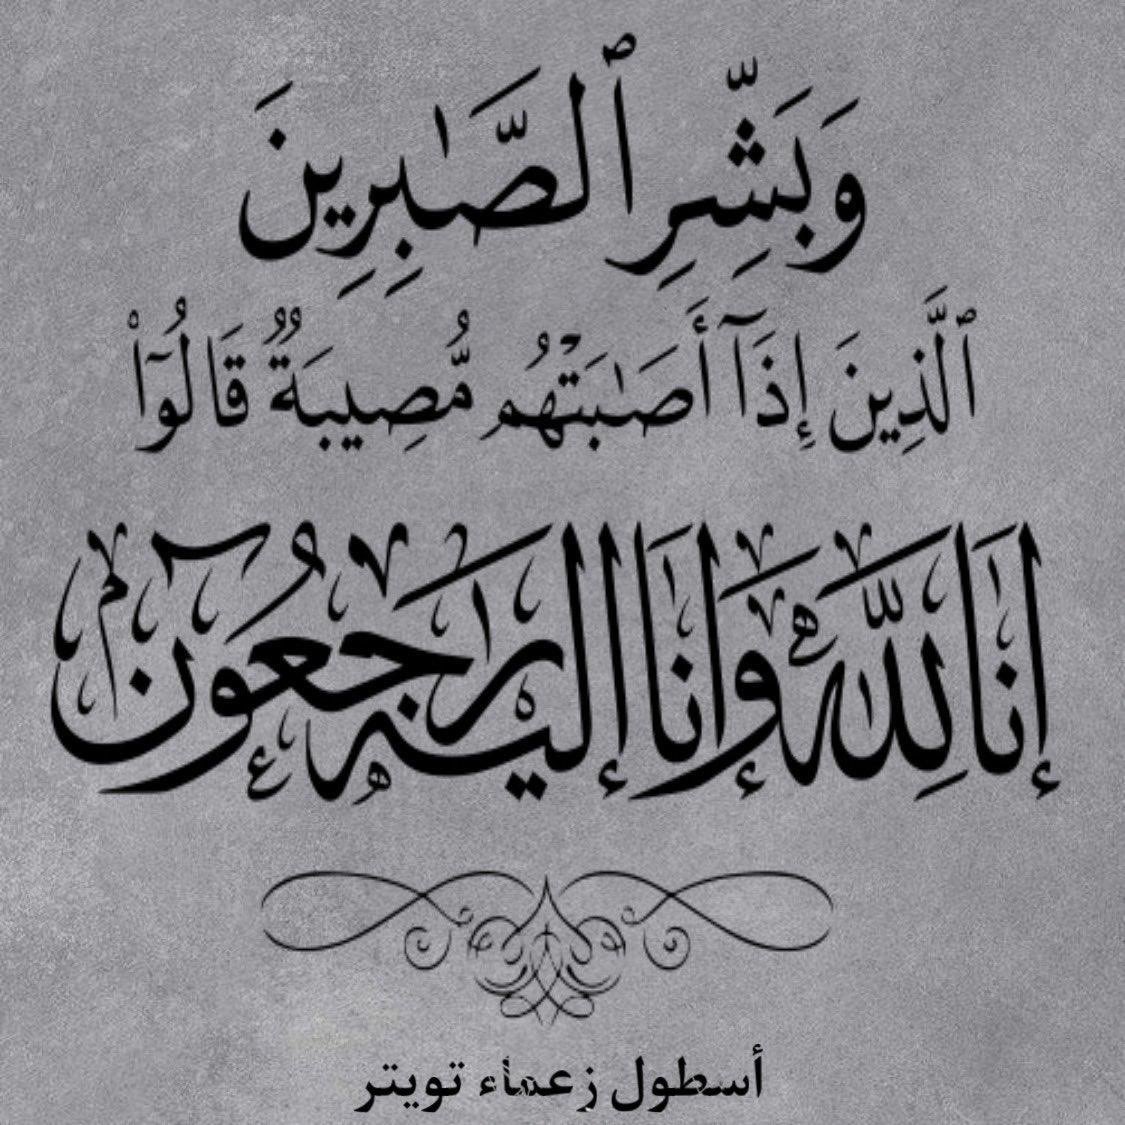 وَبَشِّرِ ٱلصَّٰبِرِينَ
ٱلَّذِينَ إِذَآ أَصَٰبَتْهُم مُّصِيبَةٌ قَالُوٓا۟
إنَا لِلّه وَإنَا إليه رَاجعُون
أسطول زعماء تويتر